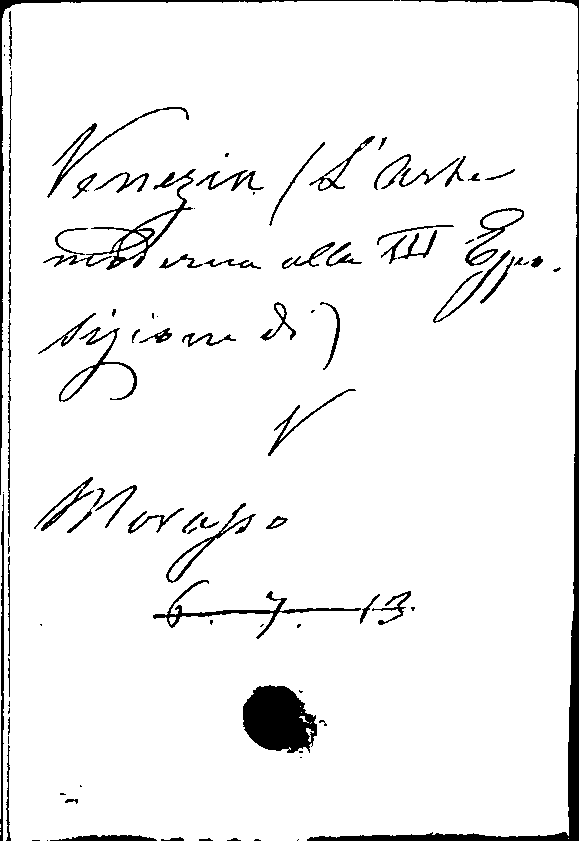 Venezia (L'Arte
moderna alla III Espo-
sizione di)
V
Morasso
6. 7. 13.